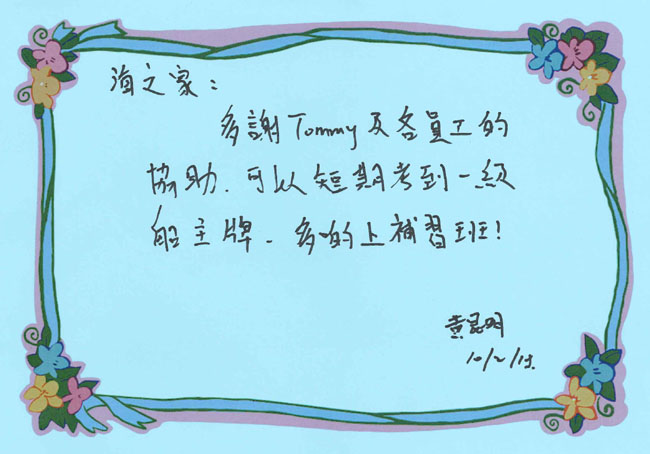 海之家：
多謝Tommy及各員工的
協助．可以短期考到一級
船主牌．多的上補習班！
黃
10/2/